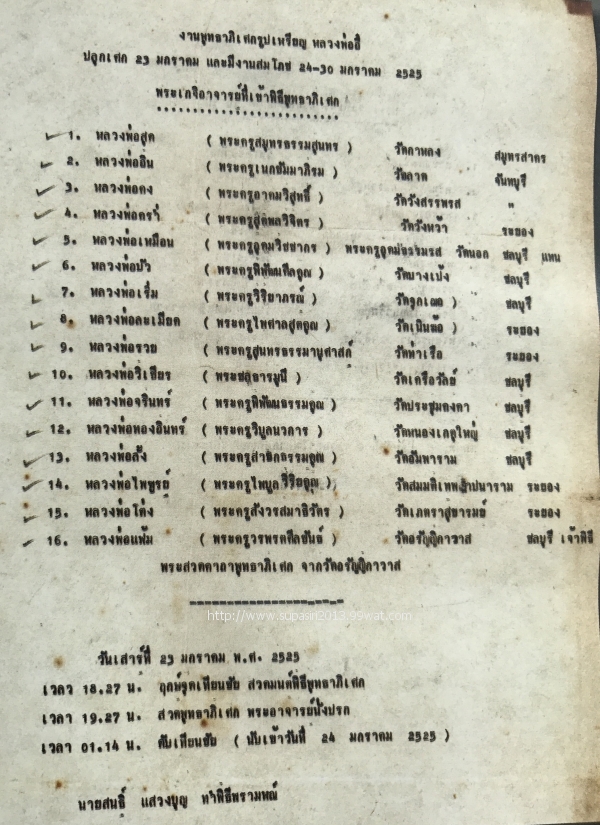 งานพุทธาภิเศกรูปเหรียญ หลวงพ่ออี๋
ปลุกเศก 23 มกราคม และมีงานสมโภช 24-30 มกราคม 2525
พระเกจิอาจารย์ที่เข้าพิธีพุทธาภิเศก
1. หลวงพ่อสุด ( พระครูสมุทรธรรมสุนทร ) วัดกาหลง สมุทรสาคร
2. หลวงพ่ออิน ( พระครูเนกขัมมาภิรม ) วัดลาด จันทบุรี
3. หลวงพ่อคง ( พระครูอาคมวิสุทธิ์ ) วัดวังสรรพรส "
4. หลวงพ่อคร่ำ ( พระครูสุตพลวิจิตร ) วัดวังหว้า ระยอง
5. หลวงพ่อเหมือน ( พระครูอุดมวิชชากร ) พระครูอุดมธรรมรส วัดนอก ชลบุรี แทน
6. หลวงพ่อบัว ( พระครูพิพัฒศีลคุณ ) วัดบางเป้ง ชลบุรี
7. หลวงพ่อเริ่ม ( พระครูวิริยาภรณ์ ) วัดจุกเฌอ ) ชลบุรี
8. หลวงพ่อละเมียด ( พระครูไพศาลสุตคุณ ) วัดเนินฆ้อ ) ระยอง
9. หลวงพ่อรวย ( พระครูสุนทรธรรมานุศาสก์ วัดท่าเรือ ระยอง
10. หลวงพ่อวิเชียร ( พระชลธารมุนี ) วัดเครือวัลย์ ชลบุรี
11. หลวงพ่อจรินทร์ ( พระครูพิพัฒธรรมคุณ ) วัดประชุมคงคา ชลบุรี
12. หลวงพ่อทองอินทร์ ( พระครูวิบูลนวการ ) วัดหนองเกตุใหญ่ ชลบุรี
13. หลวงพ่อสั้ง ( พระครูสาธกธรรมคุณ ) วัดอัมพาราม ชลบุรี
14. หลวงพ่อไพฑูรย์ ( พระครูไพบูลวิริยคุณ ) วัดสมมติเทพฐาปนาราม ระยอง
15. หลวงพ่อโต้ง ( พระครูสังวรสมาธิวัตร ) วัดเภตราสุขารมย์ ระยอง
16. หลวงพ่อแฟ้ม ( พระครูวรพรตศีลขันธ์ ) วัดอรัญญิกาวาส ชลบุรี เจ้าพิธี
พระสวดคาถาพุทธาภิเศก จากวัดอรัญญิกาวาส
http://www.supasin2013.99wat.com
วันเสาร์ที่ 23 มกราคม พ.ศ. 2525
เวลา 18.27 น. ฤกษ์จุดเทียนชัย สวดมนต์พิธีพุทธาภิเศก
เวลา 19.27 น. สวดพุทธาภิเศก พระอาจารย์นั่งปรก
เวลา 01.14 น. ดับเทียนชัย ( นับเข้าวันที่ 24 มกราคม 2525 )
นายสนธิ์ แสวงบุญ ทำพิธีพราหมณ์